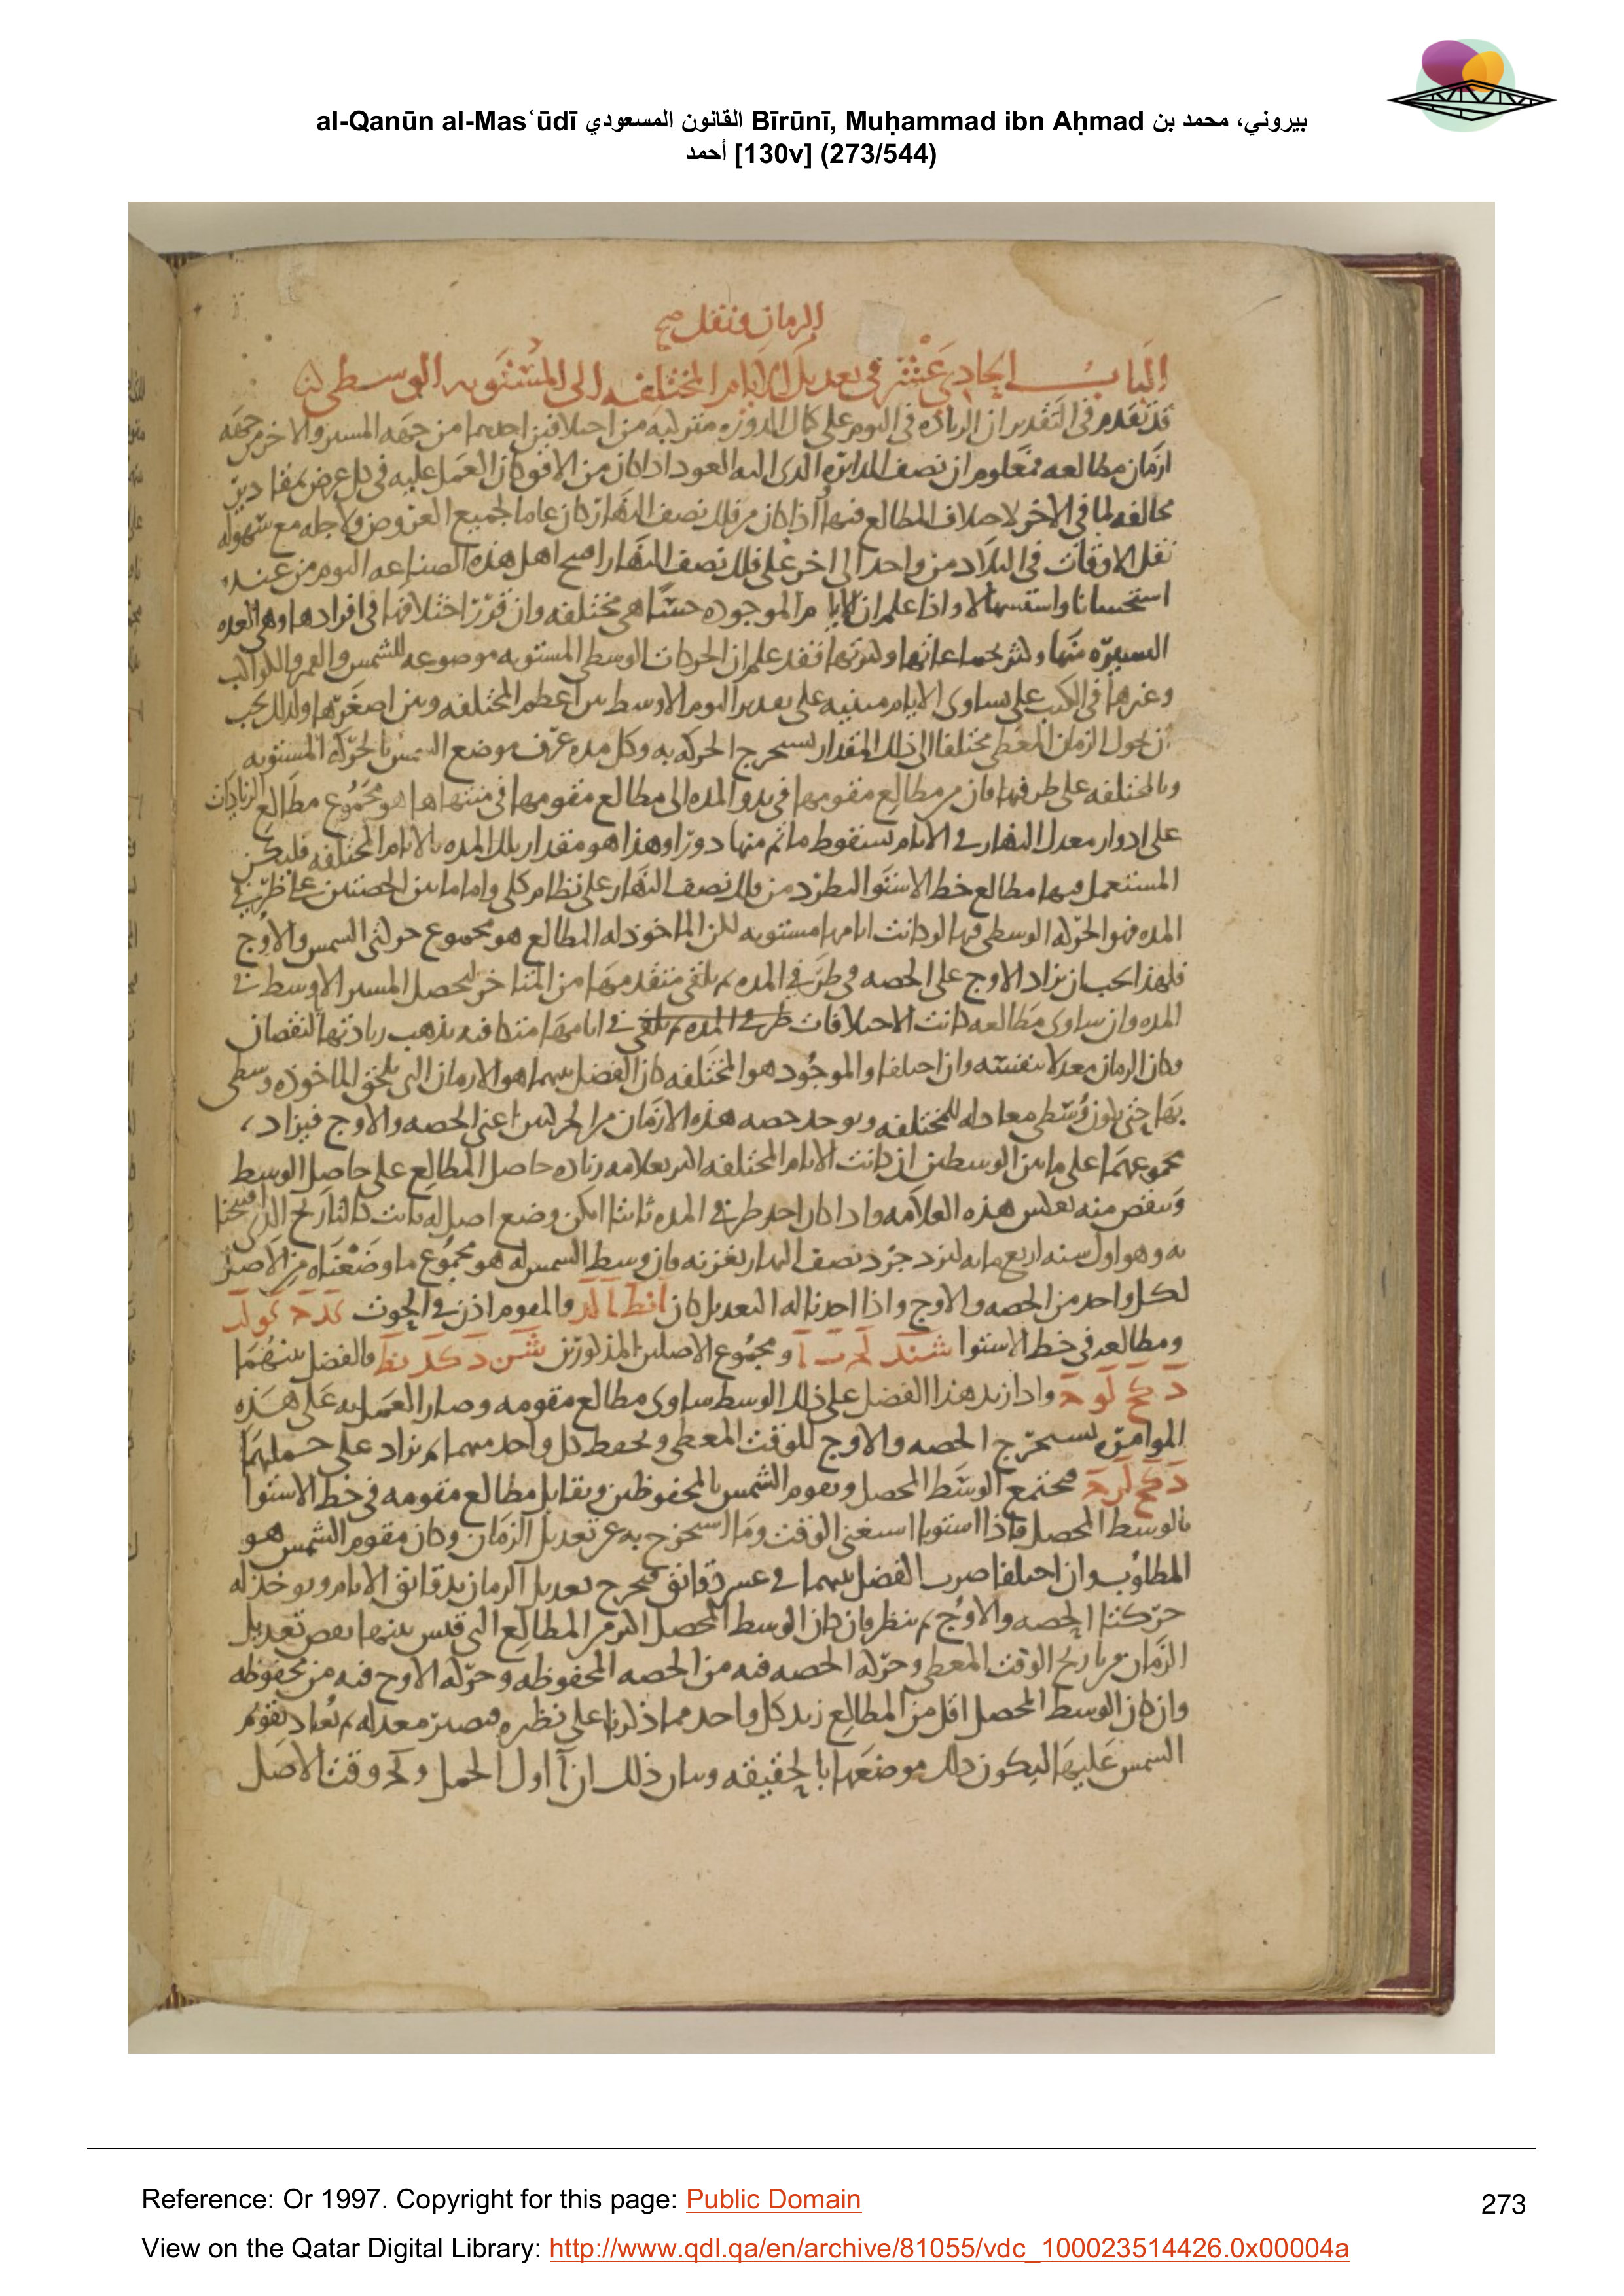 al-Qanūn al-Masʿūdī القانون المسعودي Bīrūnī, Muḥammad ibn Aḥmad بيروني، محمد بن
أحمد [130v] (273/544)
الزمان ونقل صح
الباب الحادي عشر في تعديل الايام المختلفه الى المستويه الوسطى
قد تقدم في التقدير ان الزياده في اليوم على كمال الدوره متركبه من اختلافين احدهما من جهه المسير والاخر من جهه
ازمان مطالعه ومعلوم ان نصف الدائره الذى اليه العود اذا كان من الافق كان العمل عليه في كل عرض بمقادير
مخالفه لما في الاخر لاختلاف المطالع فيها واذا كان من فلك نصف النهار كان عاما لجميع العروض ولاجله مع سهوله
نقل الاوقات في البلاد من واحد الى اخر على فلك نصف النهار اصح اهل هذه الصناعه اليوم من عنده
استحسانا واستسهالا واذا علم ان الايام الموجوده حسا هى مختلفه وان قرر اختلافها في افرادها وهى العده
اليسيره منها وكثر بجماعاتها وكثرتها فقد علم ان الحركات الوسطى المستويه موضوعه للشمس والقمر والكواكب
وغيرها في الكتب على تساوى الايام مبنيه على تقدير اليوم الاوسط بين اعظم المختلفه وبين اصغرها ولذلك يجب
ان يحول الزمان المعطى مختلفا الى ذلك المقدار ليستخرج الحركه به وكل مده عرف موضع الشمس بالحركه المستويه
وبالمختلفه على طرفيها فان من مطالع مقومها في بدو المده الى مطالع مقومها في منتهاها هو مجموع مطالع الزيادات
على ادوار معدل النهار في الايام بسقوط ما تم منها دورا وهذا هو مقدار تلك المده بالايام المختلفه فليكن
المستعمل فيها مطالع خط الاستوا ليطرد من فلك نصف النهار على نظام كلى واما ما بين الحصتين على طرفى
المده فهو الحركه الوسطى فيها لو كانت ايامها مستويه لكن الماخوذ له المطالع هو مجموع حركتى الشمس والاوج
فلهذا يجب ان يزاد الاوج على الحصه في طرفي المده ثم يلقى متقدمها من المتاخر ليحصل المسير الاوسط في
المده وان ساوى مطالعه كانت الاختلافات في ايامها متكافيه يذهب زيادتها بالنقصان
وكان الزمان معدلا بنفسه وان اختلفا والموجود هو المختلفه كان الفضل بينهما هو الازمان التى تلحق الماخوذه وسطى
بها حتى يكون وسطى معادله للمختلفه ويوجد حصه هذه الازمان من الحركتين اعنى الحصه والاوج فيزاد
مجموعهما على ما بين الوسطين ان كانت الايام المختلفه اكثر بعلامه زياده حاصل المطالع على حاصل الوسط
وينقص منه بعكس هذه العلامه واذا كان احد طرفي المده ثابتا امكن وضع اصل له ثابت كالتاريخ الذى افتتحنا
به وهو اول سنه اربع مايه ليزدجرد نصف النهار بغزنه فان وسط الشمس له هو مجموع ما وضعناه من الاصل
لكل واحد من الحصه والاوج واذا اخذنا له التعديل كان والمقوم اذن في الحوت
ومطالعه في خط الاستوا ومجموع الاصلين المذكورين فالفضل بينهما
واذا زيد هذا الفضل على ذلك الوسط ساوى مطالع مقومه وصار العمل به على هذه
الموامره يستخرج الحصه والاوج للوقت المعطى ويحفظ كل واحد منهما ثم يزاد على جملتهما
فيجتمع الوسط المحصل ويقوم الشمس بالمحفوظين ويقابل مطالع مقومه في خط الاستوا
بالوسط المحصل فاذا استويا استغنى الوقت وما استخرج به عن تعديل الزمان وكان مقوم الشمس هو
المطلوب وان اختلفا ضرب الفضل بينهما في عشر دقائق فيخرج تعديل الزمان بدقائق الايام ويوخذ له
حركتا الحصه والاوج ثم ينظر فان كان الوسط المحصل اكثر من المطالع التى قيس بينها نقص تعديل
الزمان من تاريخ الوقت المعطى وحركه الحصه فيه من الحصه المحفوظه وحركه الاوج فيه من محفوظه
وان كان الوسط المحصل اقل من المطالع زيد كل واحد مما ذكرنا على نظيره فيصير معدله ثم يعاد تقويم
الشمس عليها ليكون ذلك موضعها بالحقيقه وبيان ذلك ان آ اول الحمل و وقت الاصل
Reference: Or 1997. Copyright for this page: Public Domain
273
View on the Qatar Digital Library: http://www.qdl.qa/en/archive/81055/vdc_100023514426.0x00004a